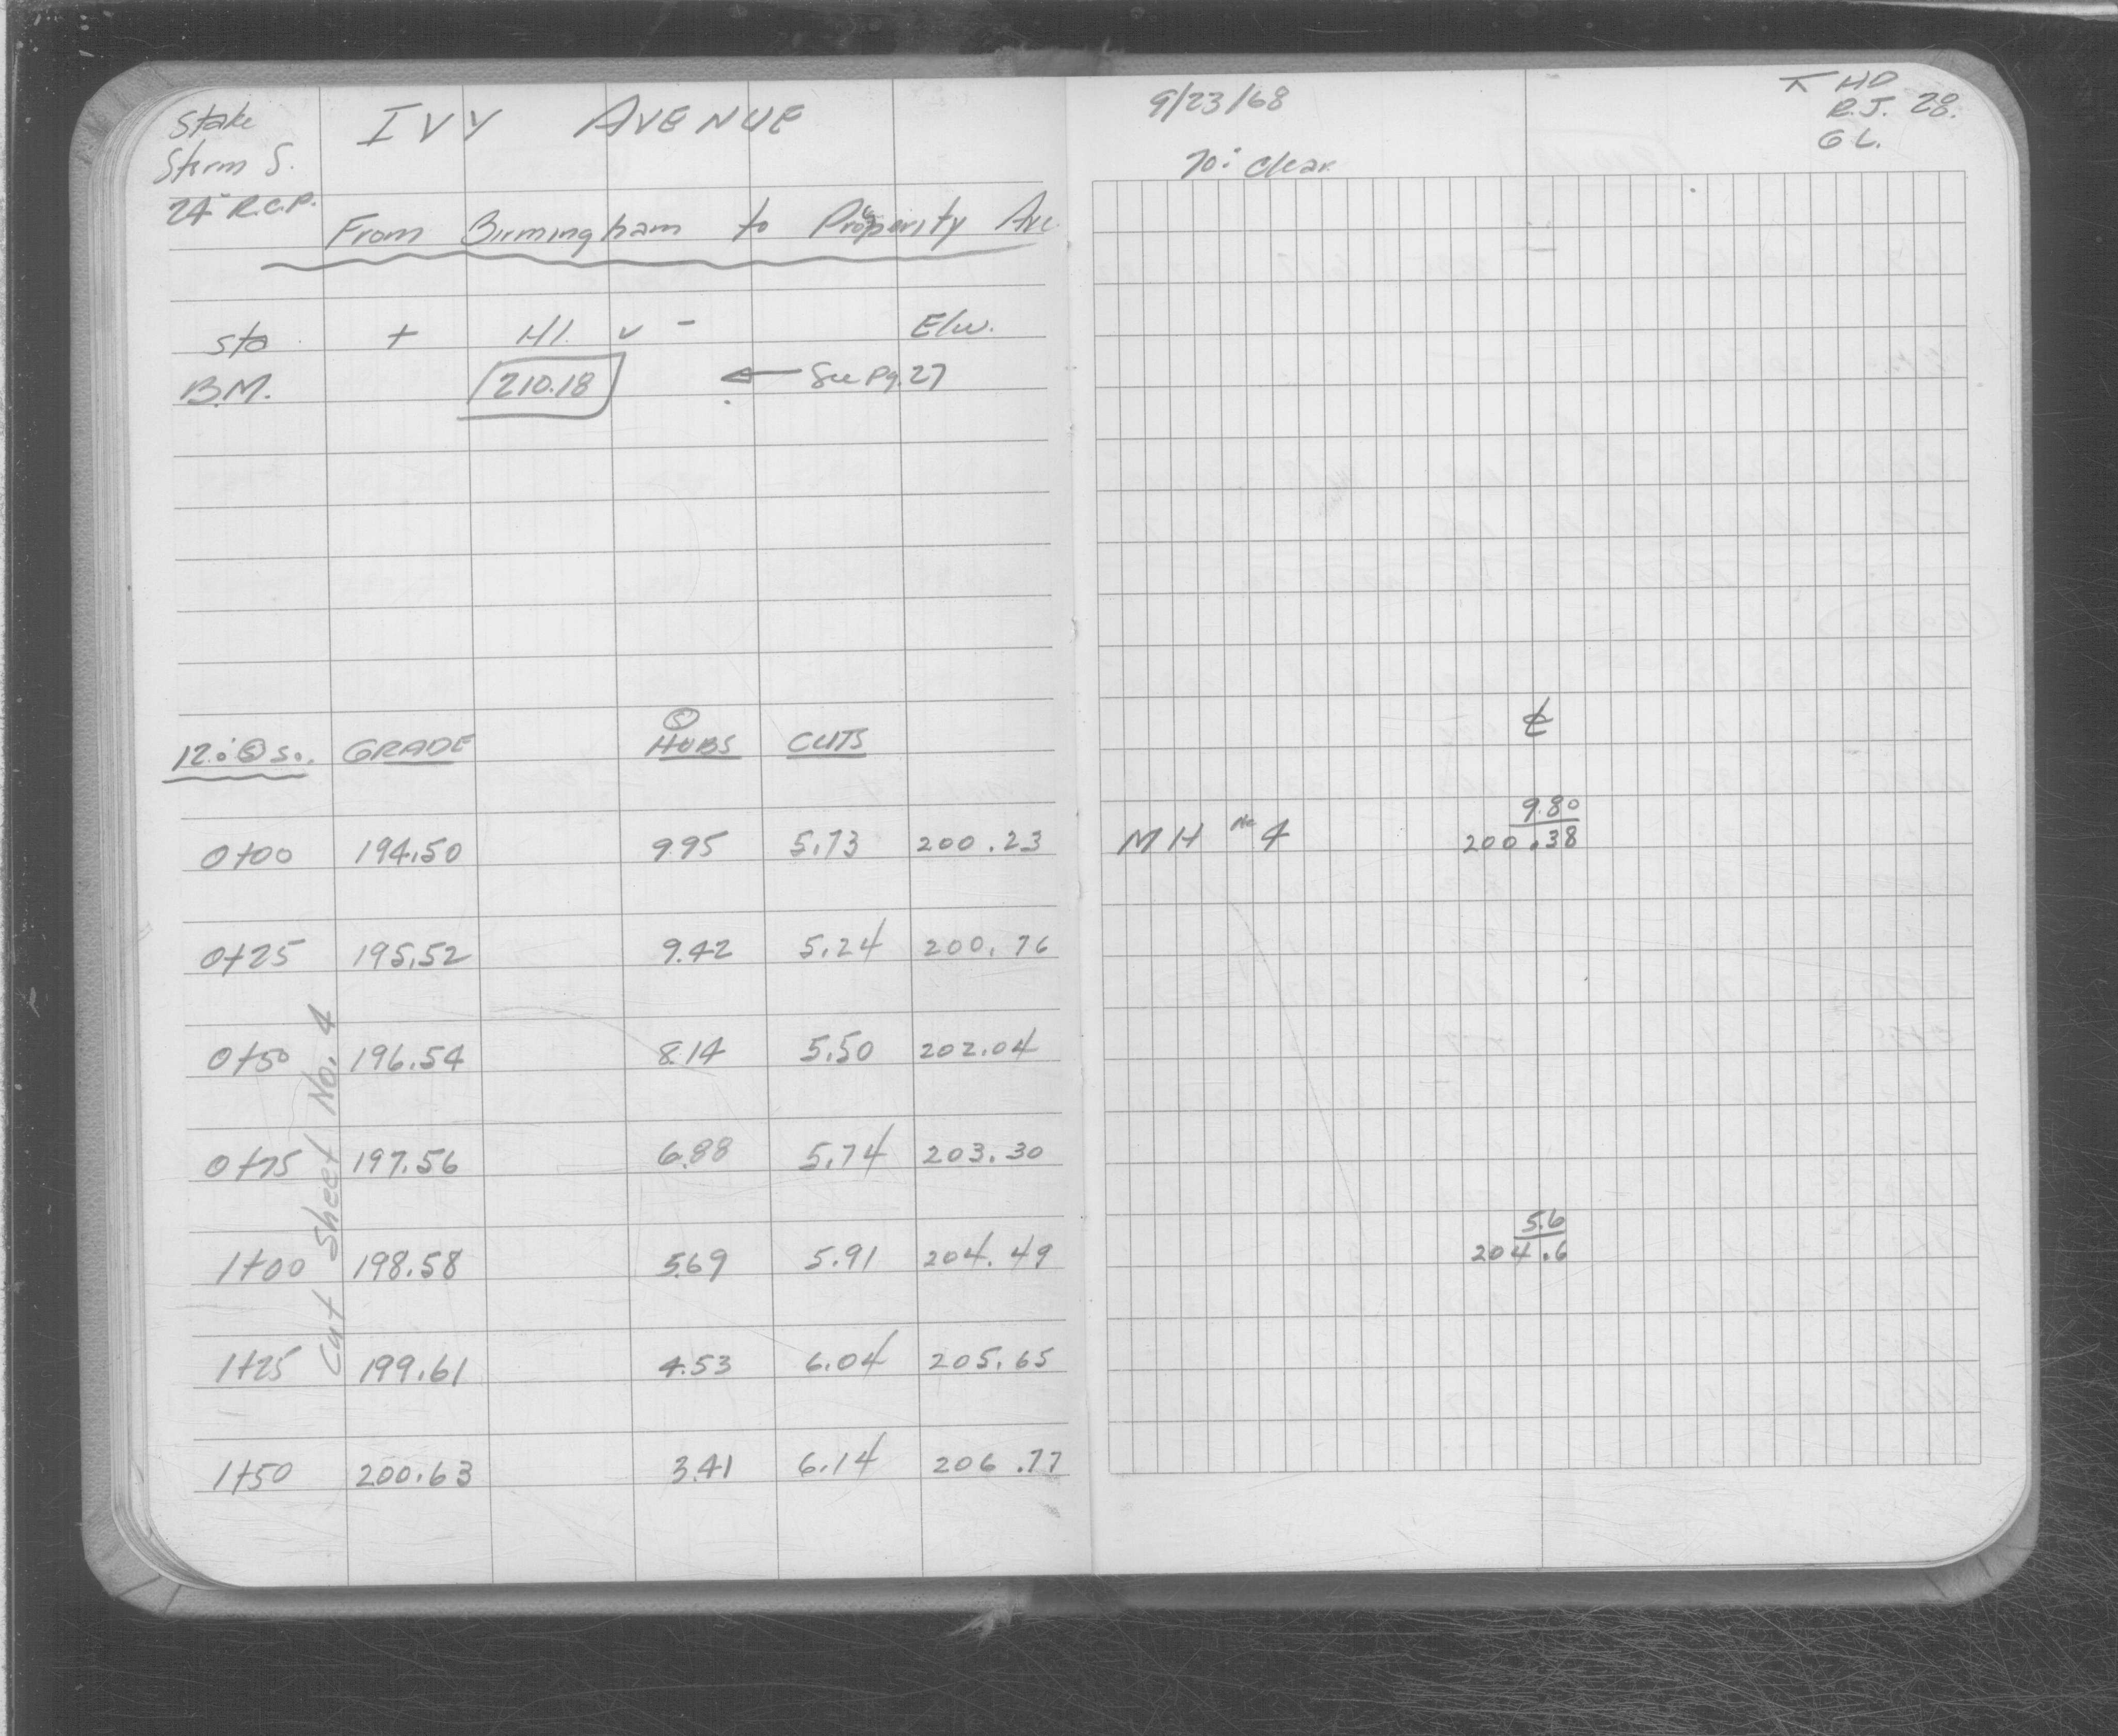 Stake
Storm S.
24" R.C.P.
IVY AVENUE
From Birmingham to Prosperity Ave.
sta + H.I. - Elev.
B.M. 210.18 ← See Pg. 27
12.' S. GRADE HUBS CUTS
0+00 194.50 9.95 5.73 200.23
0+25 195.52 9.42 5.24 200.76
0+50 196.54 8.14 5.50 202.04
0+75 197.56 6.88 5.74 203.30
1+00 198.58 5.69 5.91 204.49
1+25 199.61 4.53 6.04 205.65
1+50 200.63 3.41 6.14 206.77
Cut Sheet No. 4
9/23/68
70° Clear
⊼ HD
R.J. 28.
G L.
℄
9.80
MH No 4 200.38
5.6
204.6